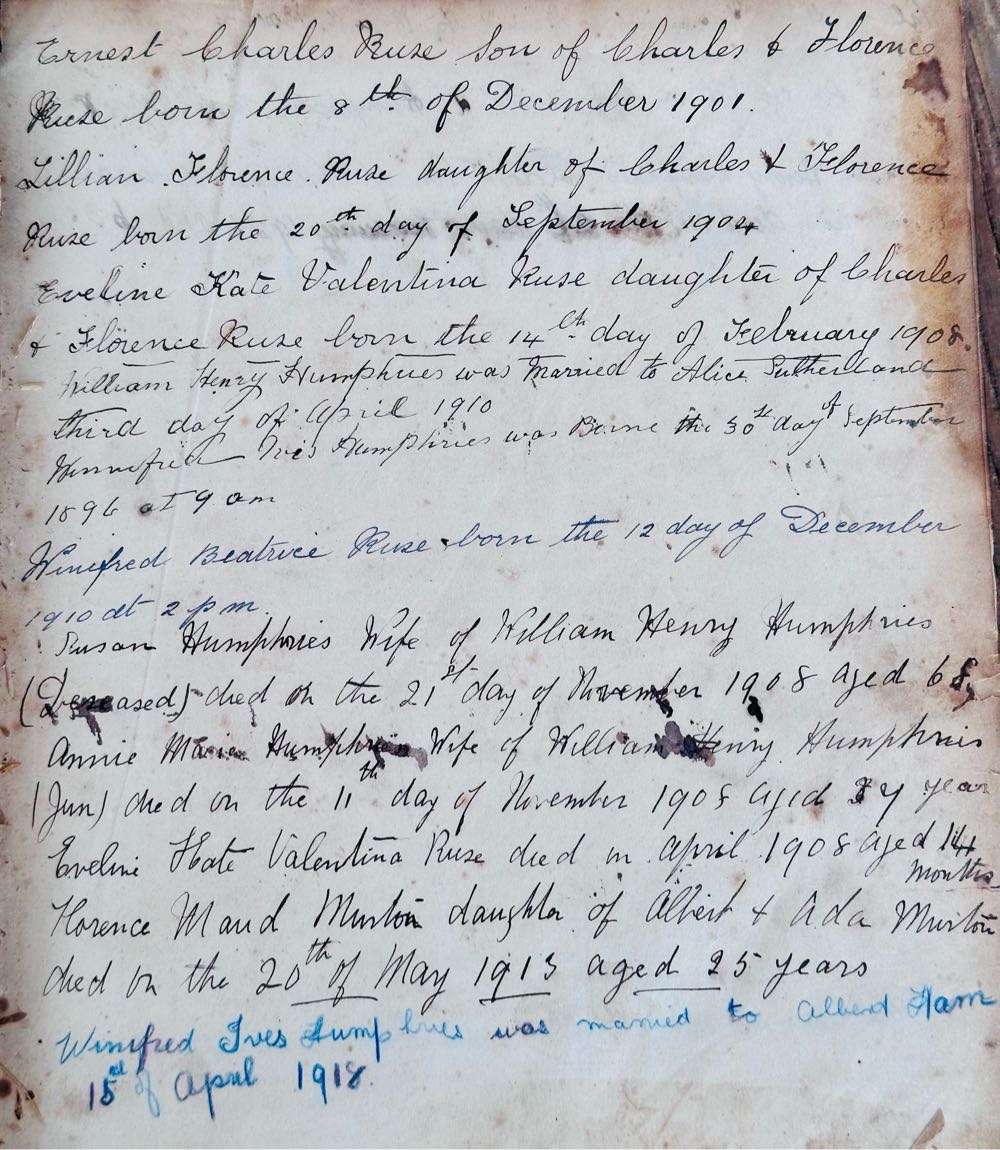 Ernest Charles Ruse Son of Charles & Florence
Ruse born the 8th of December 1901.
Lillian Florence Ruse daughter of Charles & Florence
Ruse born the 20th day of September 1904
Eveline Kate Valentina Ruse daughter of Charles
& Florence Ruse born the 14th day of February 1908.
William Henry Humphries was Married to Alice Sutherland
third day of April 1910
Winnifred Ives Humphries was Borne the 30st day of September
1896 at 9 am
Winifred Beatrice Ruse born the 12 day of December
1910 at 2 pm.
Susan Humphries Wife of William Henry Humphries
(Deceased) died on the 21st day of November 1908 aged 68,
Annie Maria Humphries Wife of William Henry Humphries
(Jun) died on the 11th day of November 1908 aged 37 year
Eveline Kate Valentina Ruse died in April 1908 aged 14
Months
Florence Maud Murton daughter of Albert & Ada Murton
died on the 20th of May 1913 aged 25 years
Winifred Ives Humphries was married to Albert Ham
15th of April 1918.